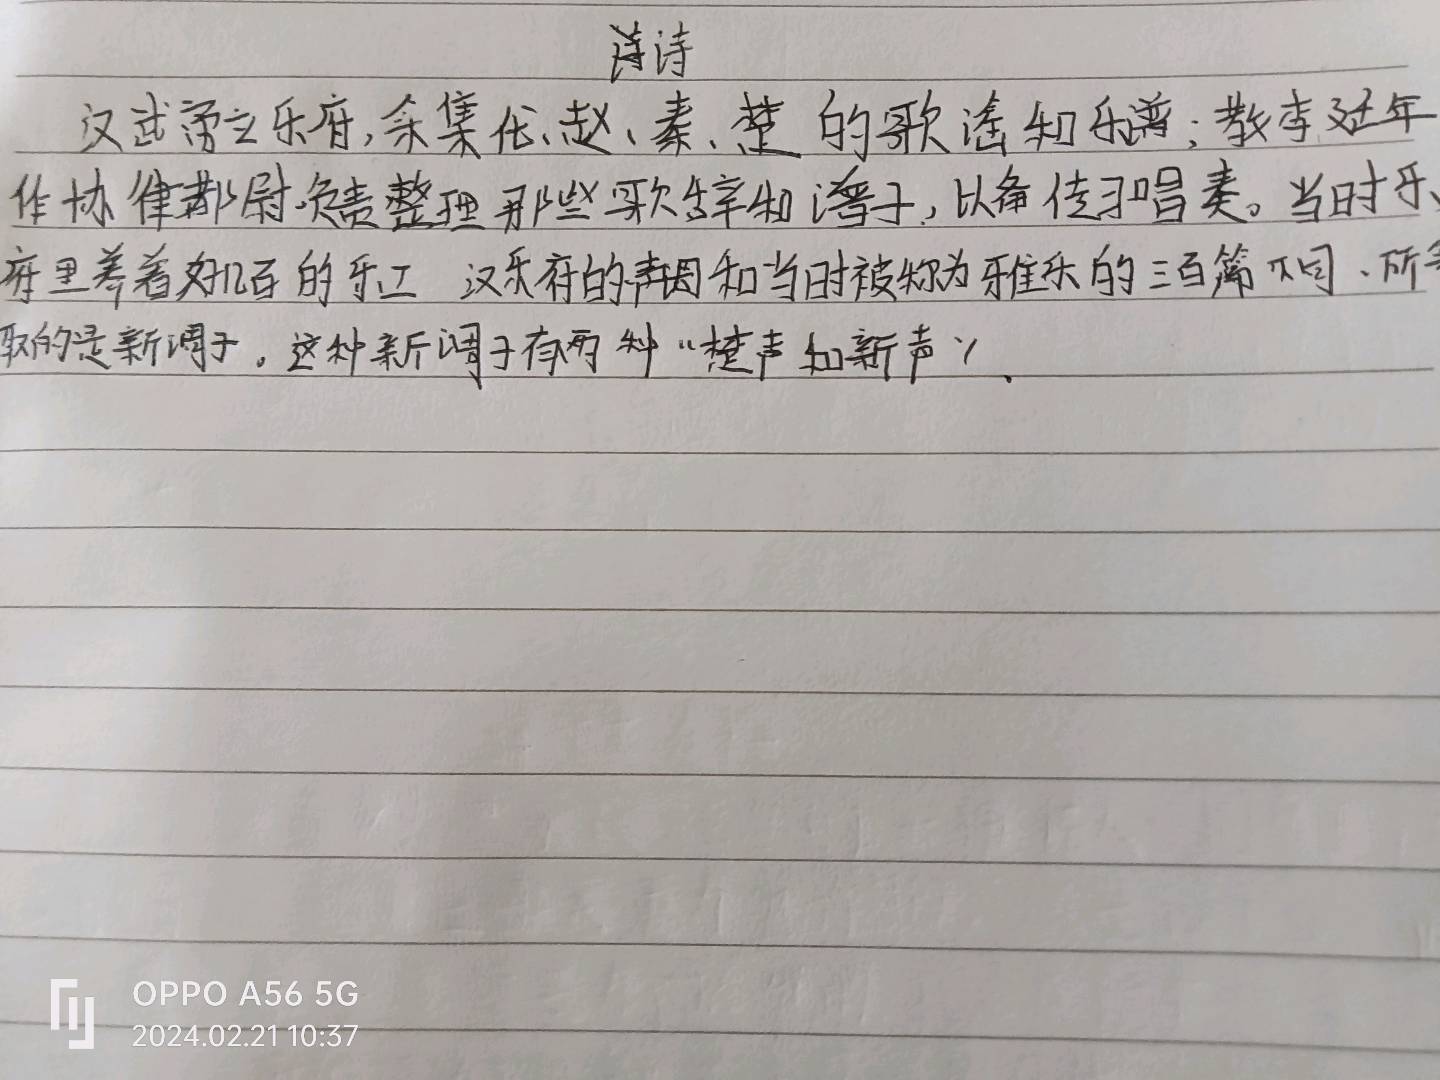 诗诗
汉武帝立乐府,采集代、赵、秦、楚的歌谣和乐谱;教李延年
作协律都尉.负责整理那些歌辞和谱子,以备传习唱奏。当时乐
府里养着好几百的乐工 汉乐府的声调和当时被称为雅乐的三百篇不同、所
取的是新调子。这种新调子有两种“楚声和新声”.
OPPO A56 5G
2024.02.21 10:37